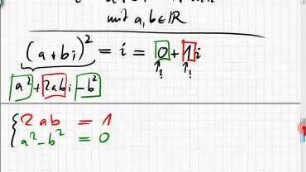 mit a, b ∈ ℝ
(a+bi)² = i = 0 + 1i
a² + 2abi - b²
{ 2ab = 1
a² - b² = 0